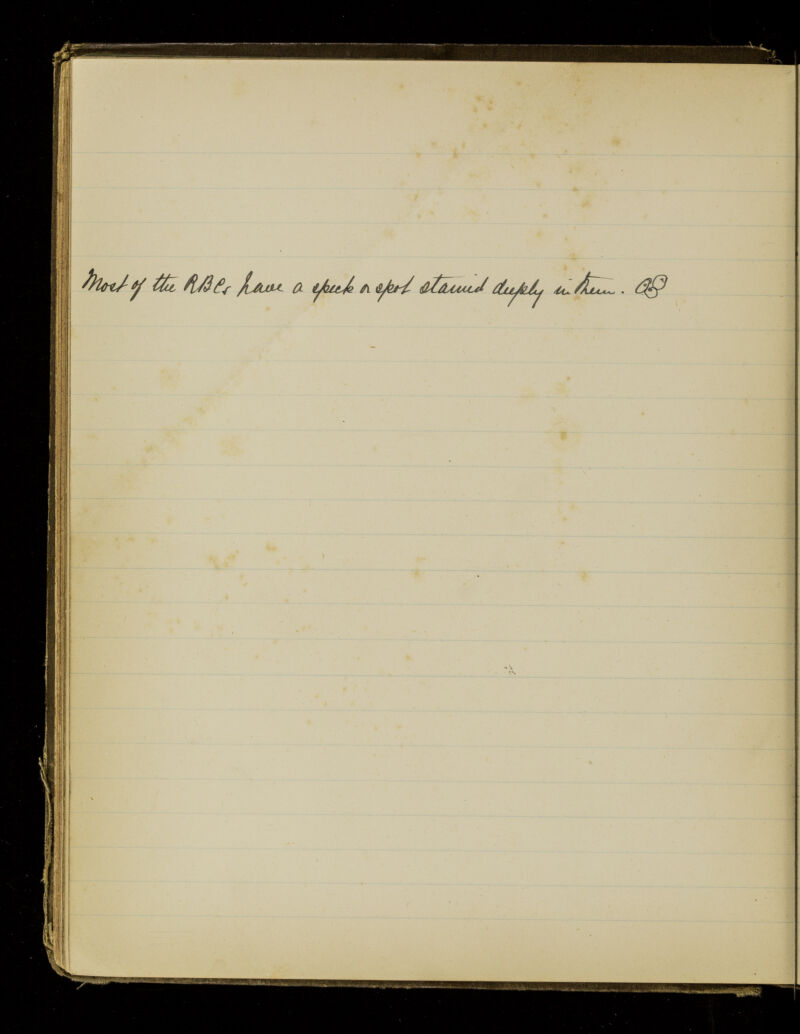 Most of the RBCs have a speck or spot stained deeply in them.